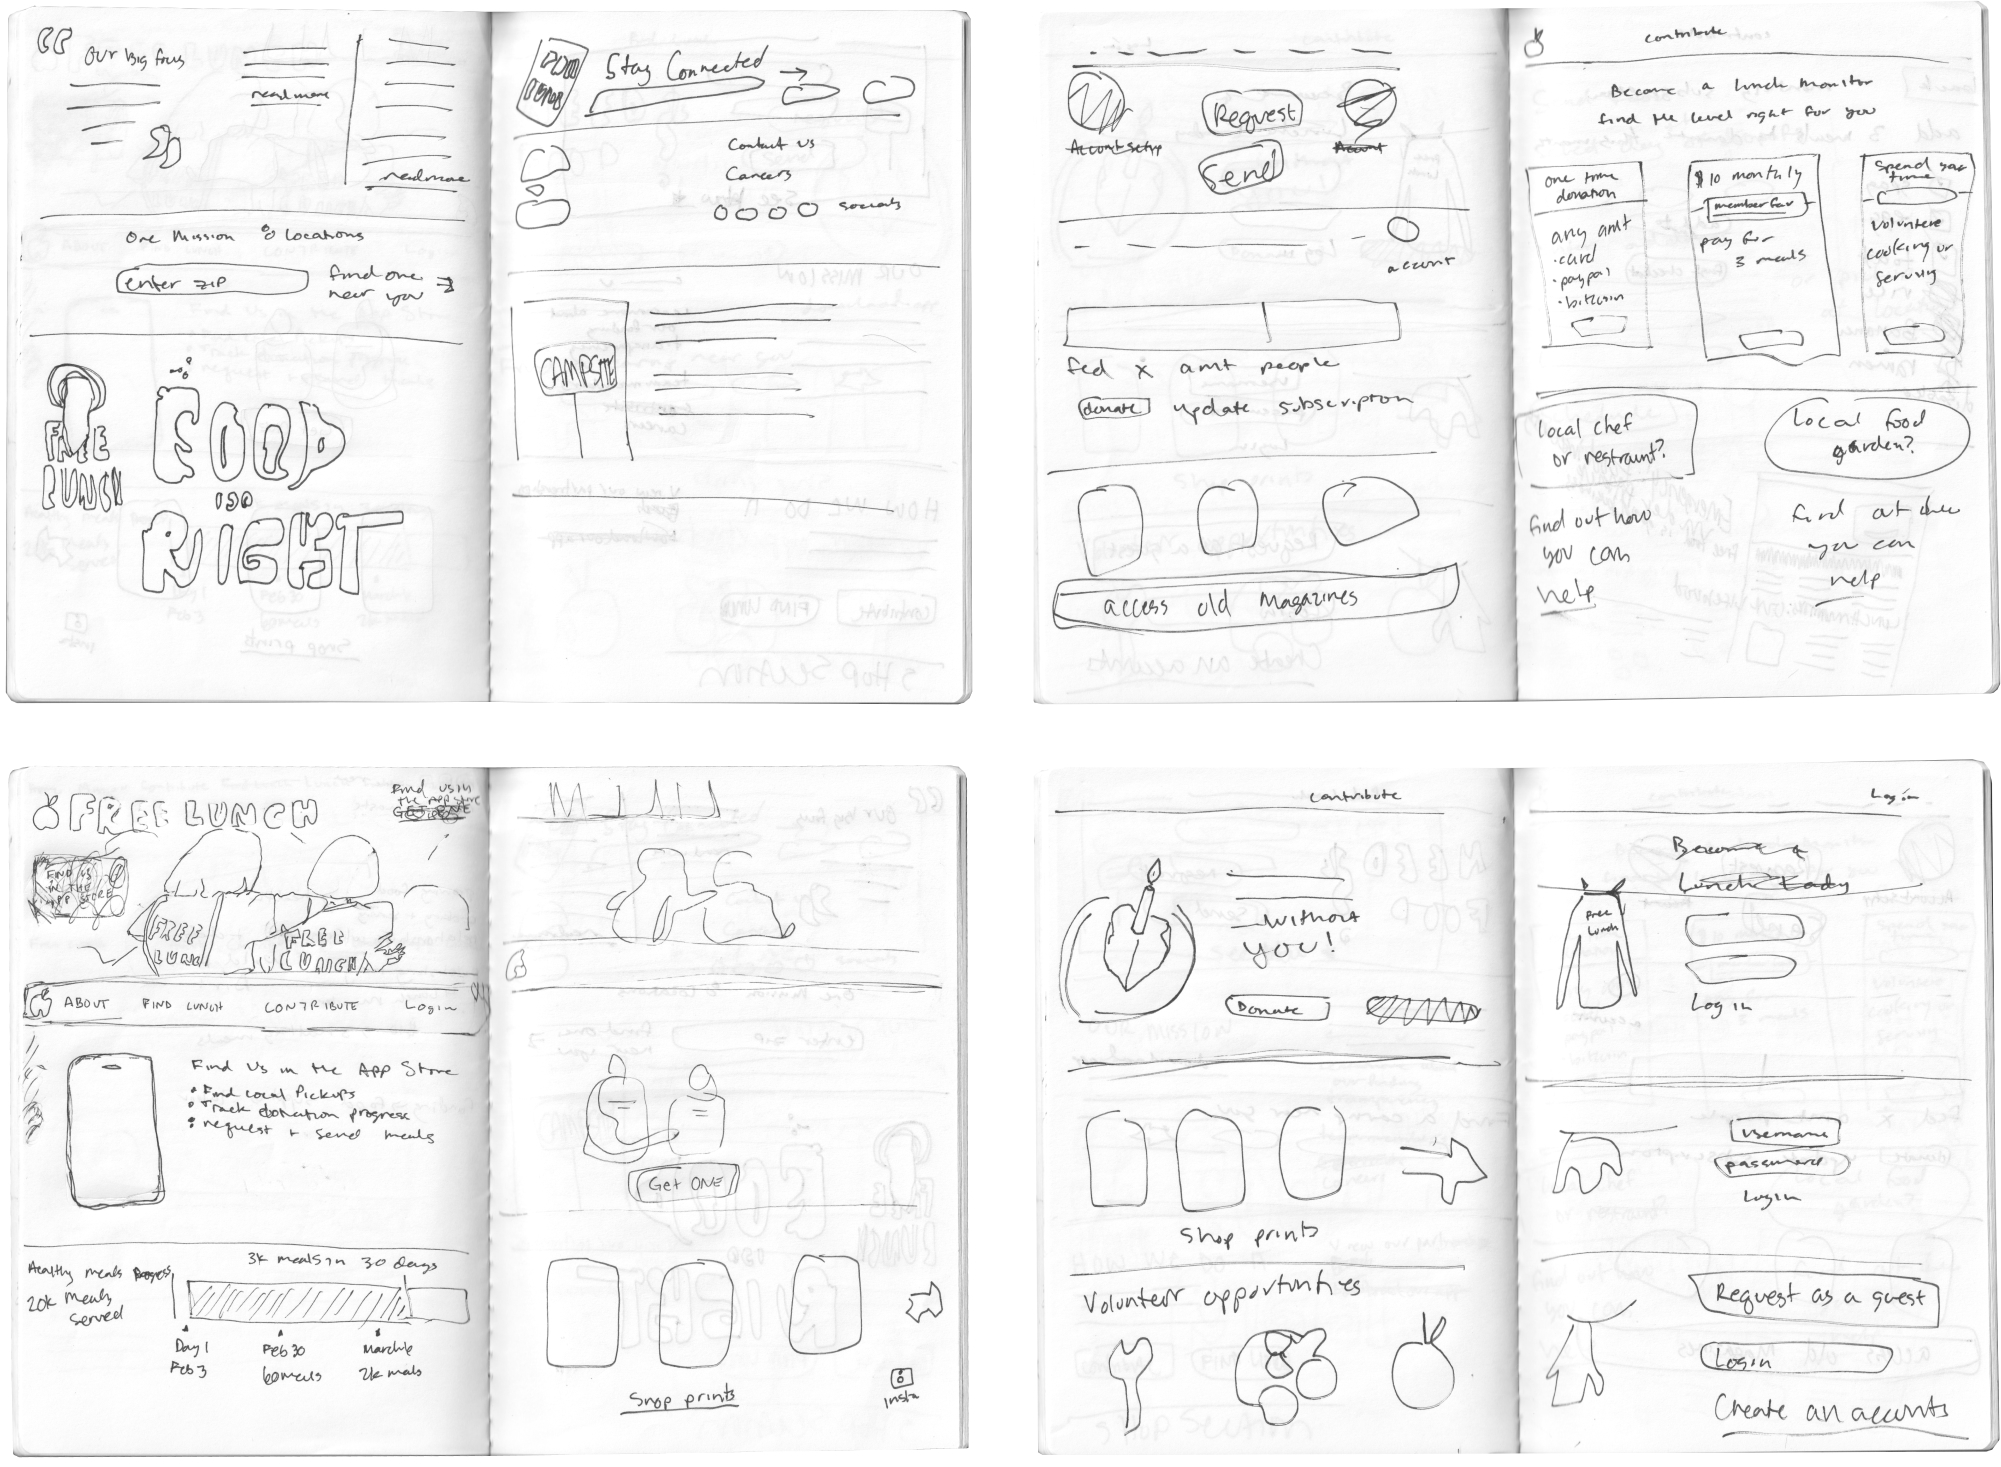 our big focus
read more
read more
One Mission 8 locations
enter zip
find one
near you
FREE
LUNCH
FOOD
RIGHT
Stay Connected
Contact us
Careers
socials
CAMPSITE
Request
Send
Account
account
fed x amt people
donate update subscription
access old Magazines
contribute
Become a lunch monitor
find the level right for you
one time
donation
any amt
• card
• paypal
• bitcoin
$10 monthly
pay for
3 meals
Spend your
time
cooking or
local chef
or restraunt?
find out how
you can
help
local food
garden?
find out how
you can
help
FREE LUNCH
Find us in
the app store
FIND US
IN THE
APP STORE
FREE
LUNCH
FREE
LUNCH
ABOUT FIND LUNCH CONTRIBUTE Login
Find Us in the App Store
• Find Local Pickups
• Track donation progress
• request + send meals
3k meals in 30 days
Healthy meals
20k meals
served
Day 1
Feb 3
Feb 30
60 meals
2k meals
Get ONE
Shop prints
insta
contribute
without
you!
Donate
Shop prints
Volunteer opportunities
Log in
Become a
Lunch Lady
Free
Lunch
Log in
username
password
Login
Request as a guest
Login
Create an accunts